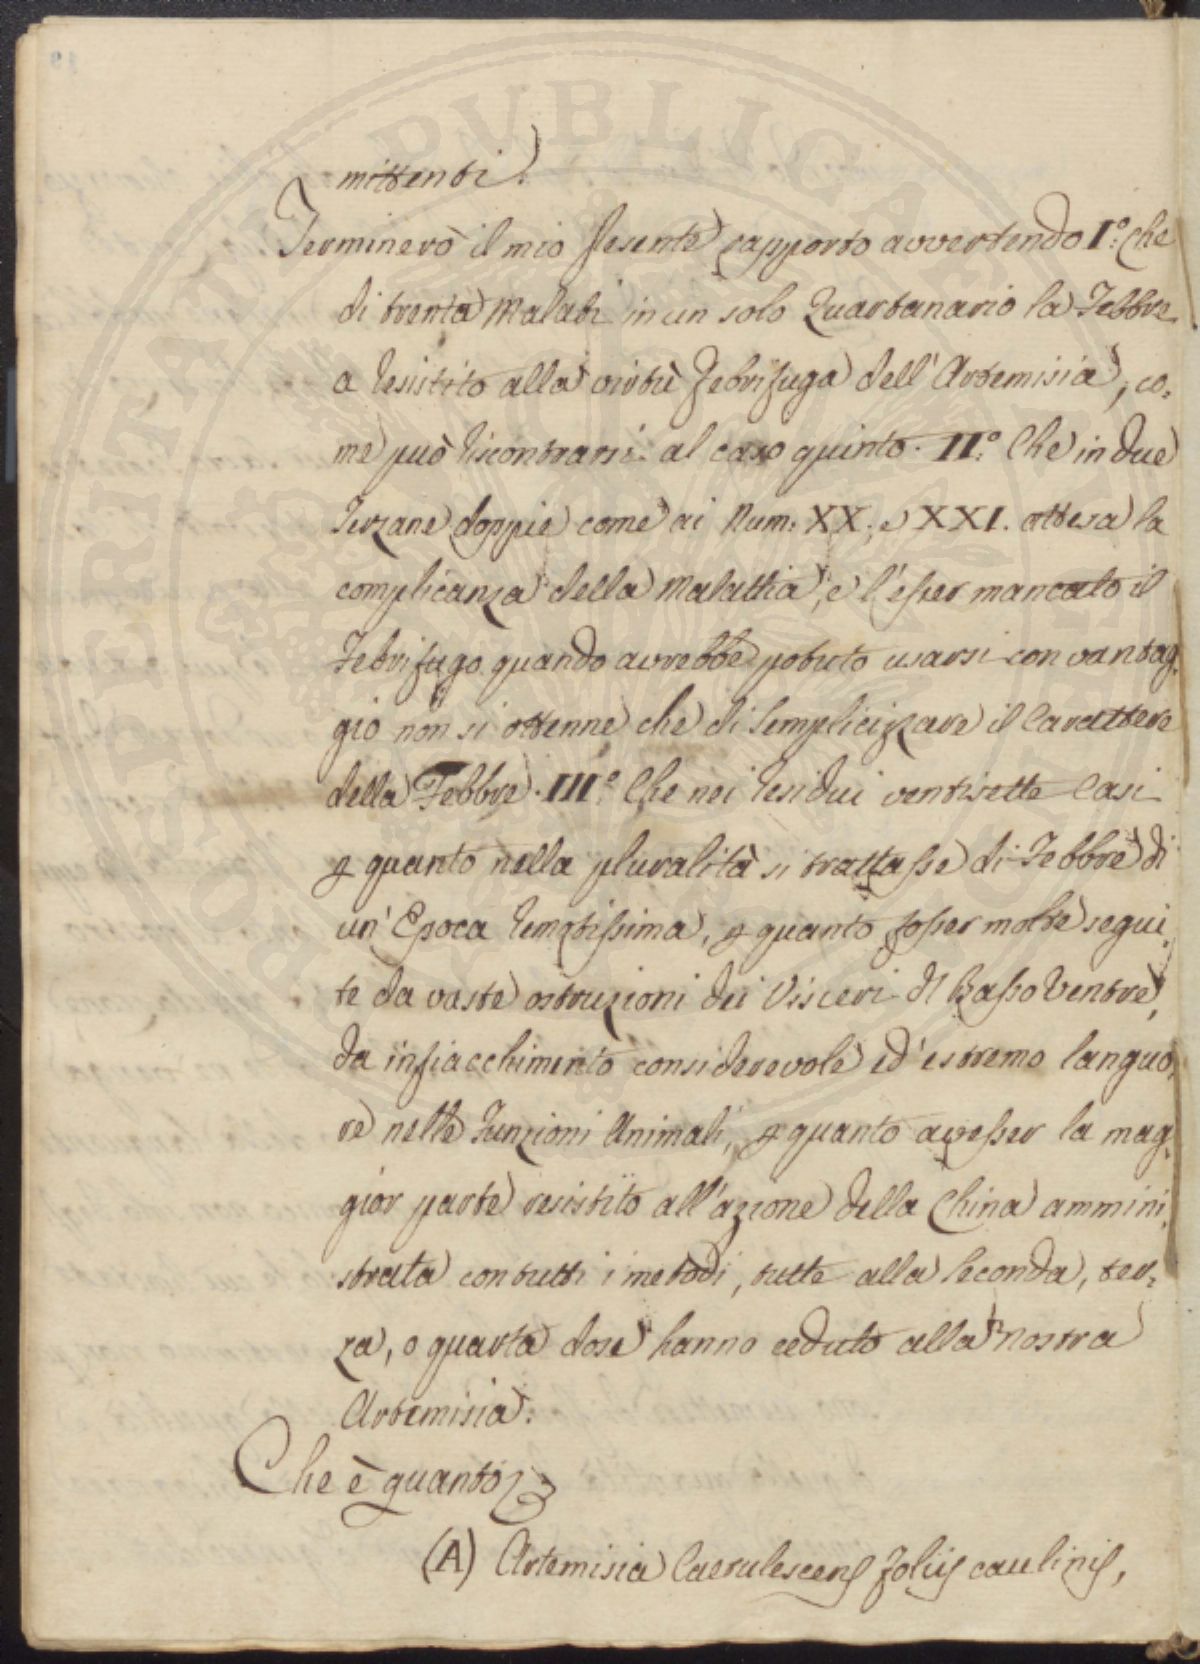 mittenti.
Terminerò il mio presente rapporto avvertendo I.° Che
di trenta Malati in un solo Quartanario la Febbre
a resistito alla virtù Febrifuga dell'Artemisia, co=
me può riscontrarsi al caso quinto. II.° Che in due
Terzane doppie come ai Num: XX. e XXI. attesa la
complicanza della Malattia, e l'esser mancato il
Febrifugo quando avrebbe potuto usarsi con vantag=
gio non si ottenne che di semplicizzare il Carattere
della Febbre. III.° Che nei residui ventisette Casi
p quanto nella pluralità si trattasse di Febbre di
un'Epoca remotissima, p quanto fosser molte segui=
te da vaste ostruzioni dei Visceri dl Basso Ventre,
da infiacchimento considerevole ed'estremo languo=
re nelle Funzioni Animali, p quanto avesser la mag=
gior parte resistito all'azione della China ammini=
strata con tutti i metodi, tutte alla seconda, ter=
za, o quarta dose hanno ceduto alla nostra
Artemisia.
Che è quanto
(A) Artemisia Caerulescens foliis caulinis,
PROSPERITATI PUBLICAE AUGENDAE